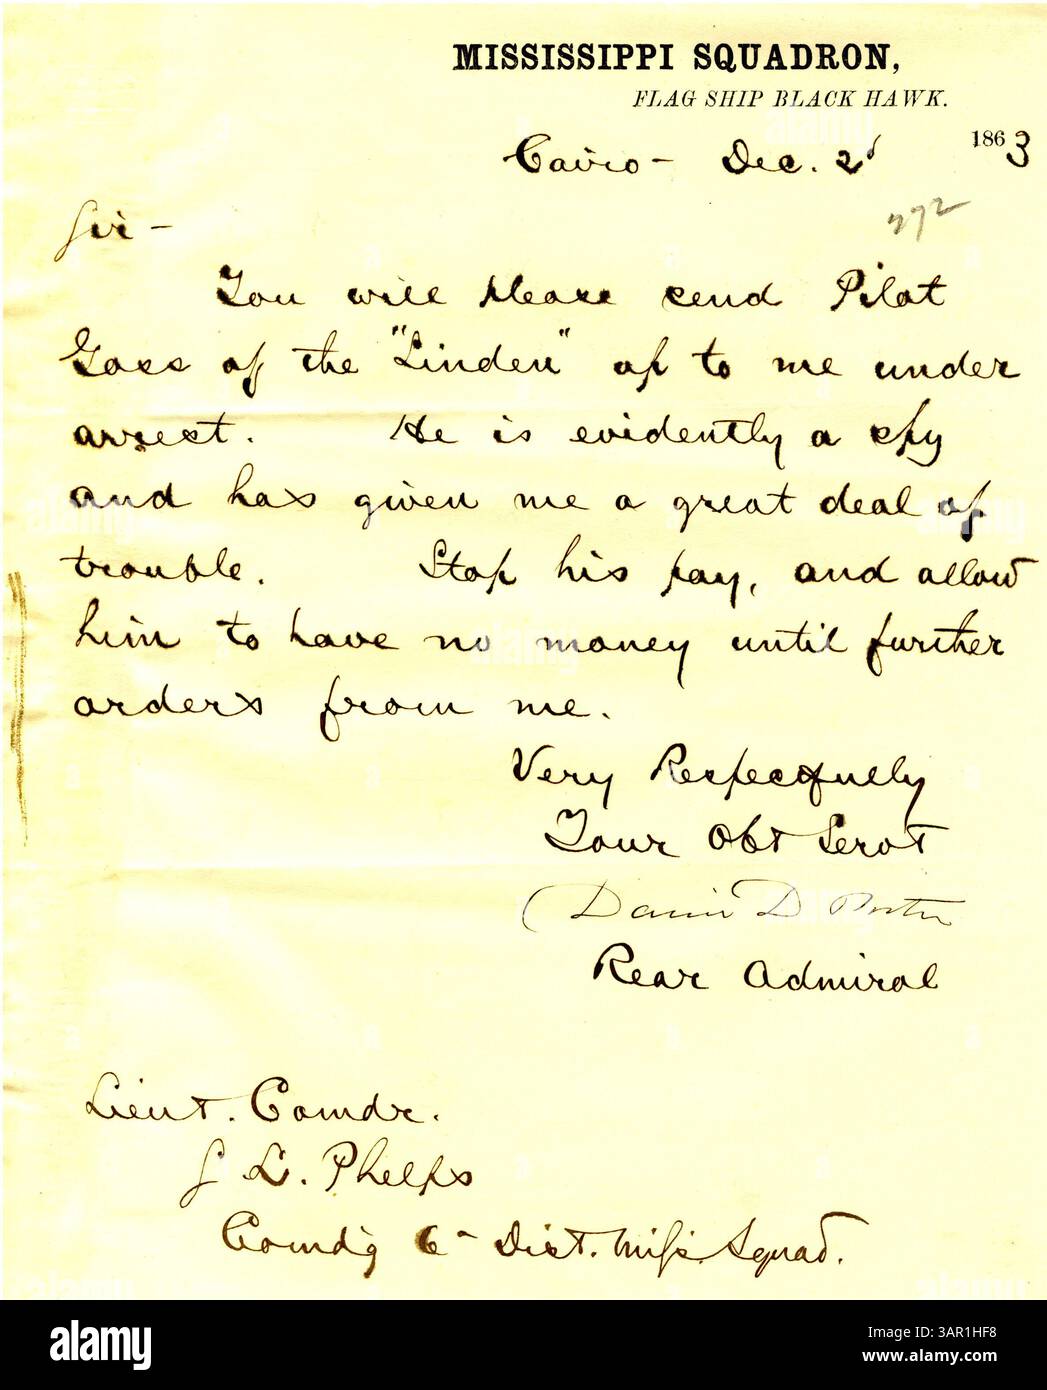 MISSISSIPPI SQUADRON,
FLAG SHIP BLACK HAWK.
Cairo - Dec. 2d 1863
Sir -
You will please send Pilot
Goss of the "Linden" up to me under
arrest. He is evidently a spy
and has given me a great deal of
trouble. Stop his pay, and allow
him to have no money until further
orders from me.
Very Respectfully
Your Obt Servt
David D Porter
Rear Admiral
Lieut. Comdr.
S L. Phelps
Comdg 6 - Dist. Miss. Squad.
alamy
Image ID: 3AR1HF8
www.alamy.com